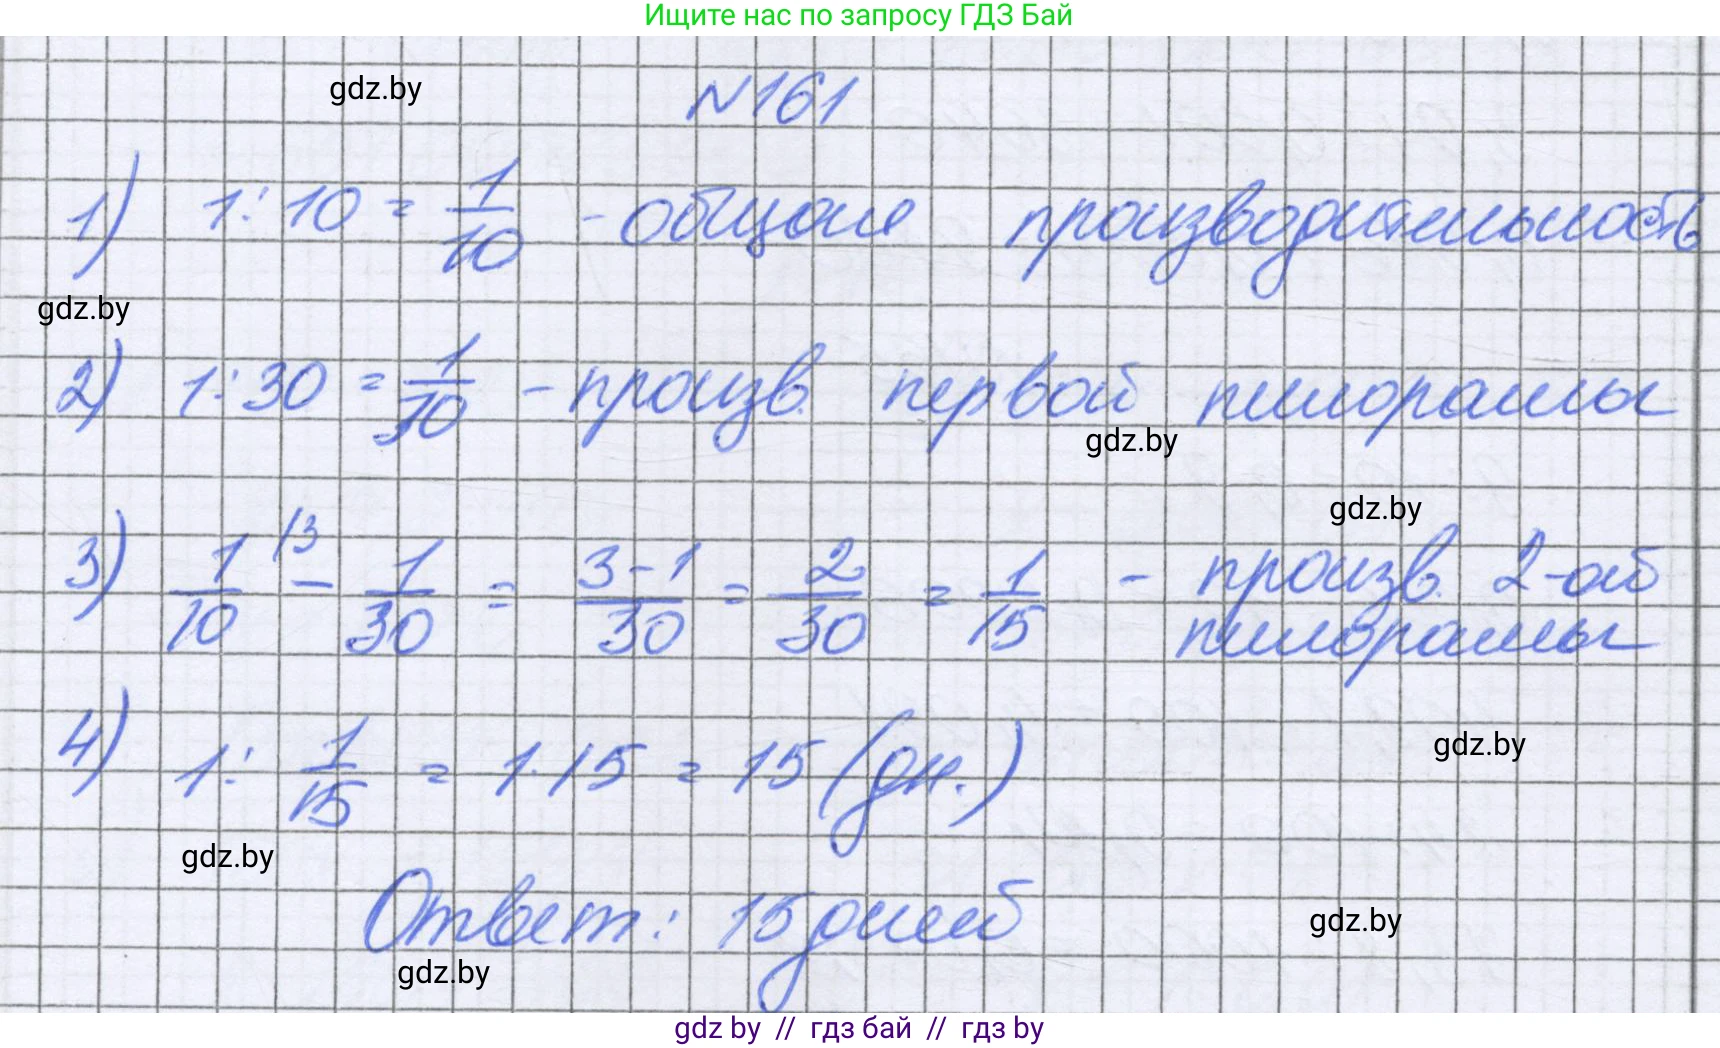 Ищите нас по запросу ГДЗ Бай
gdz.by
№161
1) 1:10 = 1/10 - общая производительность
gdz.by
2) 1:30 = 1/30 - произв. первой пилорамы
gdz.by
gdz.by
3) 1/10 \3 - 1/30 = 3-1/30 = 2/30 = 1/15 - произв. 2-ой
пилорамы
4) 1: 1/15 = 1·15 = 15 (дн.)
gdz.by
gdz.by
Ответ: 15 дней
gdz.by
gdz.by
gdz by // гдз бай // гдз by